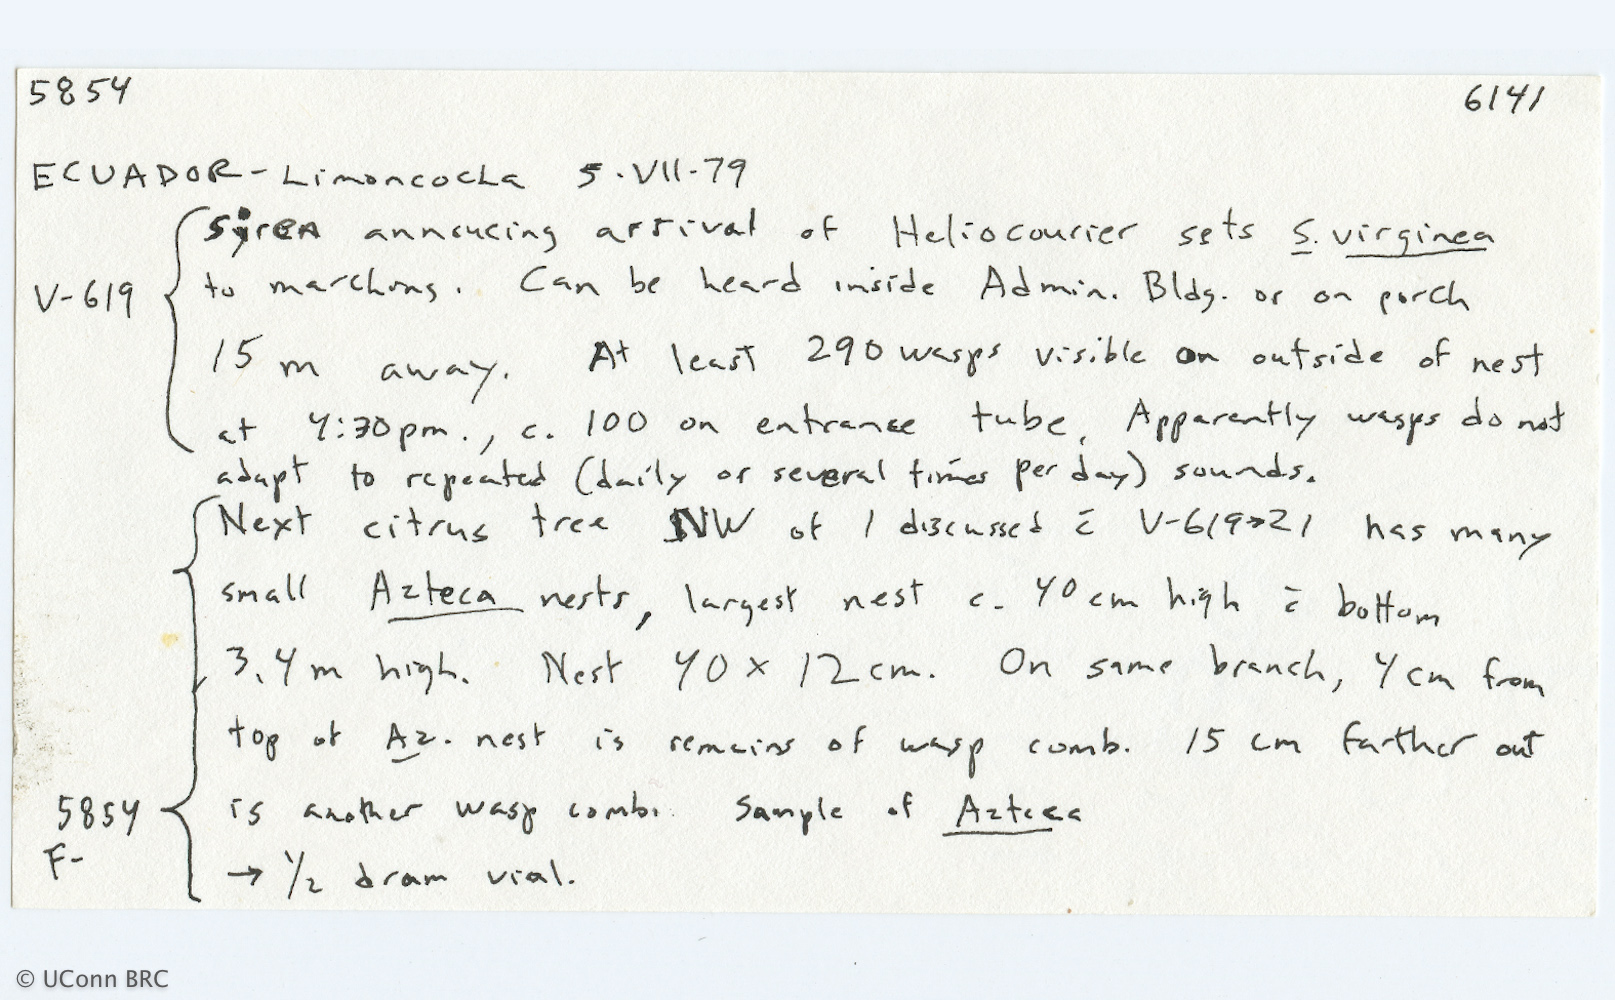 5854 6141
ECUADOR - Limoncocha 5-VII-79
Siren annoucing arrival of Heliocourier sets S. virginea
V-619 to marching. Can be heard inside Admin. Bldg. or on porch
15 m away. At least 290 wasps visible on outside of nest
at 4:30pm., c. 100 on entrance tube. Apparently wasps do not
adapt to repeated (daily or several times per day) sounds.
Next citrus tree NW of 1 discussed c̄ V-619→21 has many
small Azteca nests, largest nest c. 40 cm high c̄ bottom
3.4 m high. Nest 40 x 12 cm. On same branch, 4 cm from
top of Az. nest is remains of wasp comb. 15 cm farther out
5854 is another wasp comb. Sample of Azteca
F- → 1/2 dram vial.
© UConn BRC